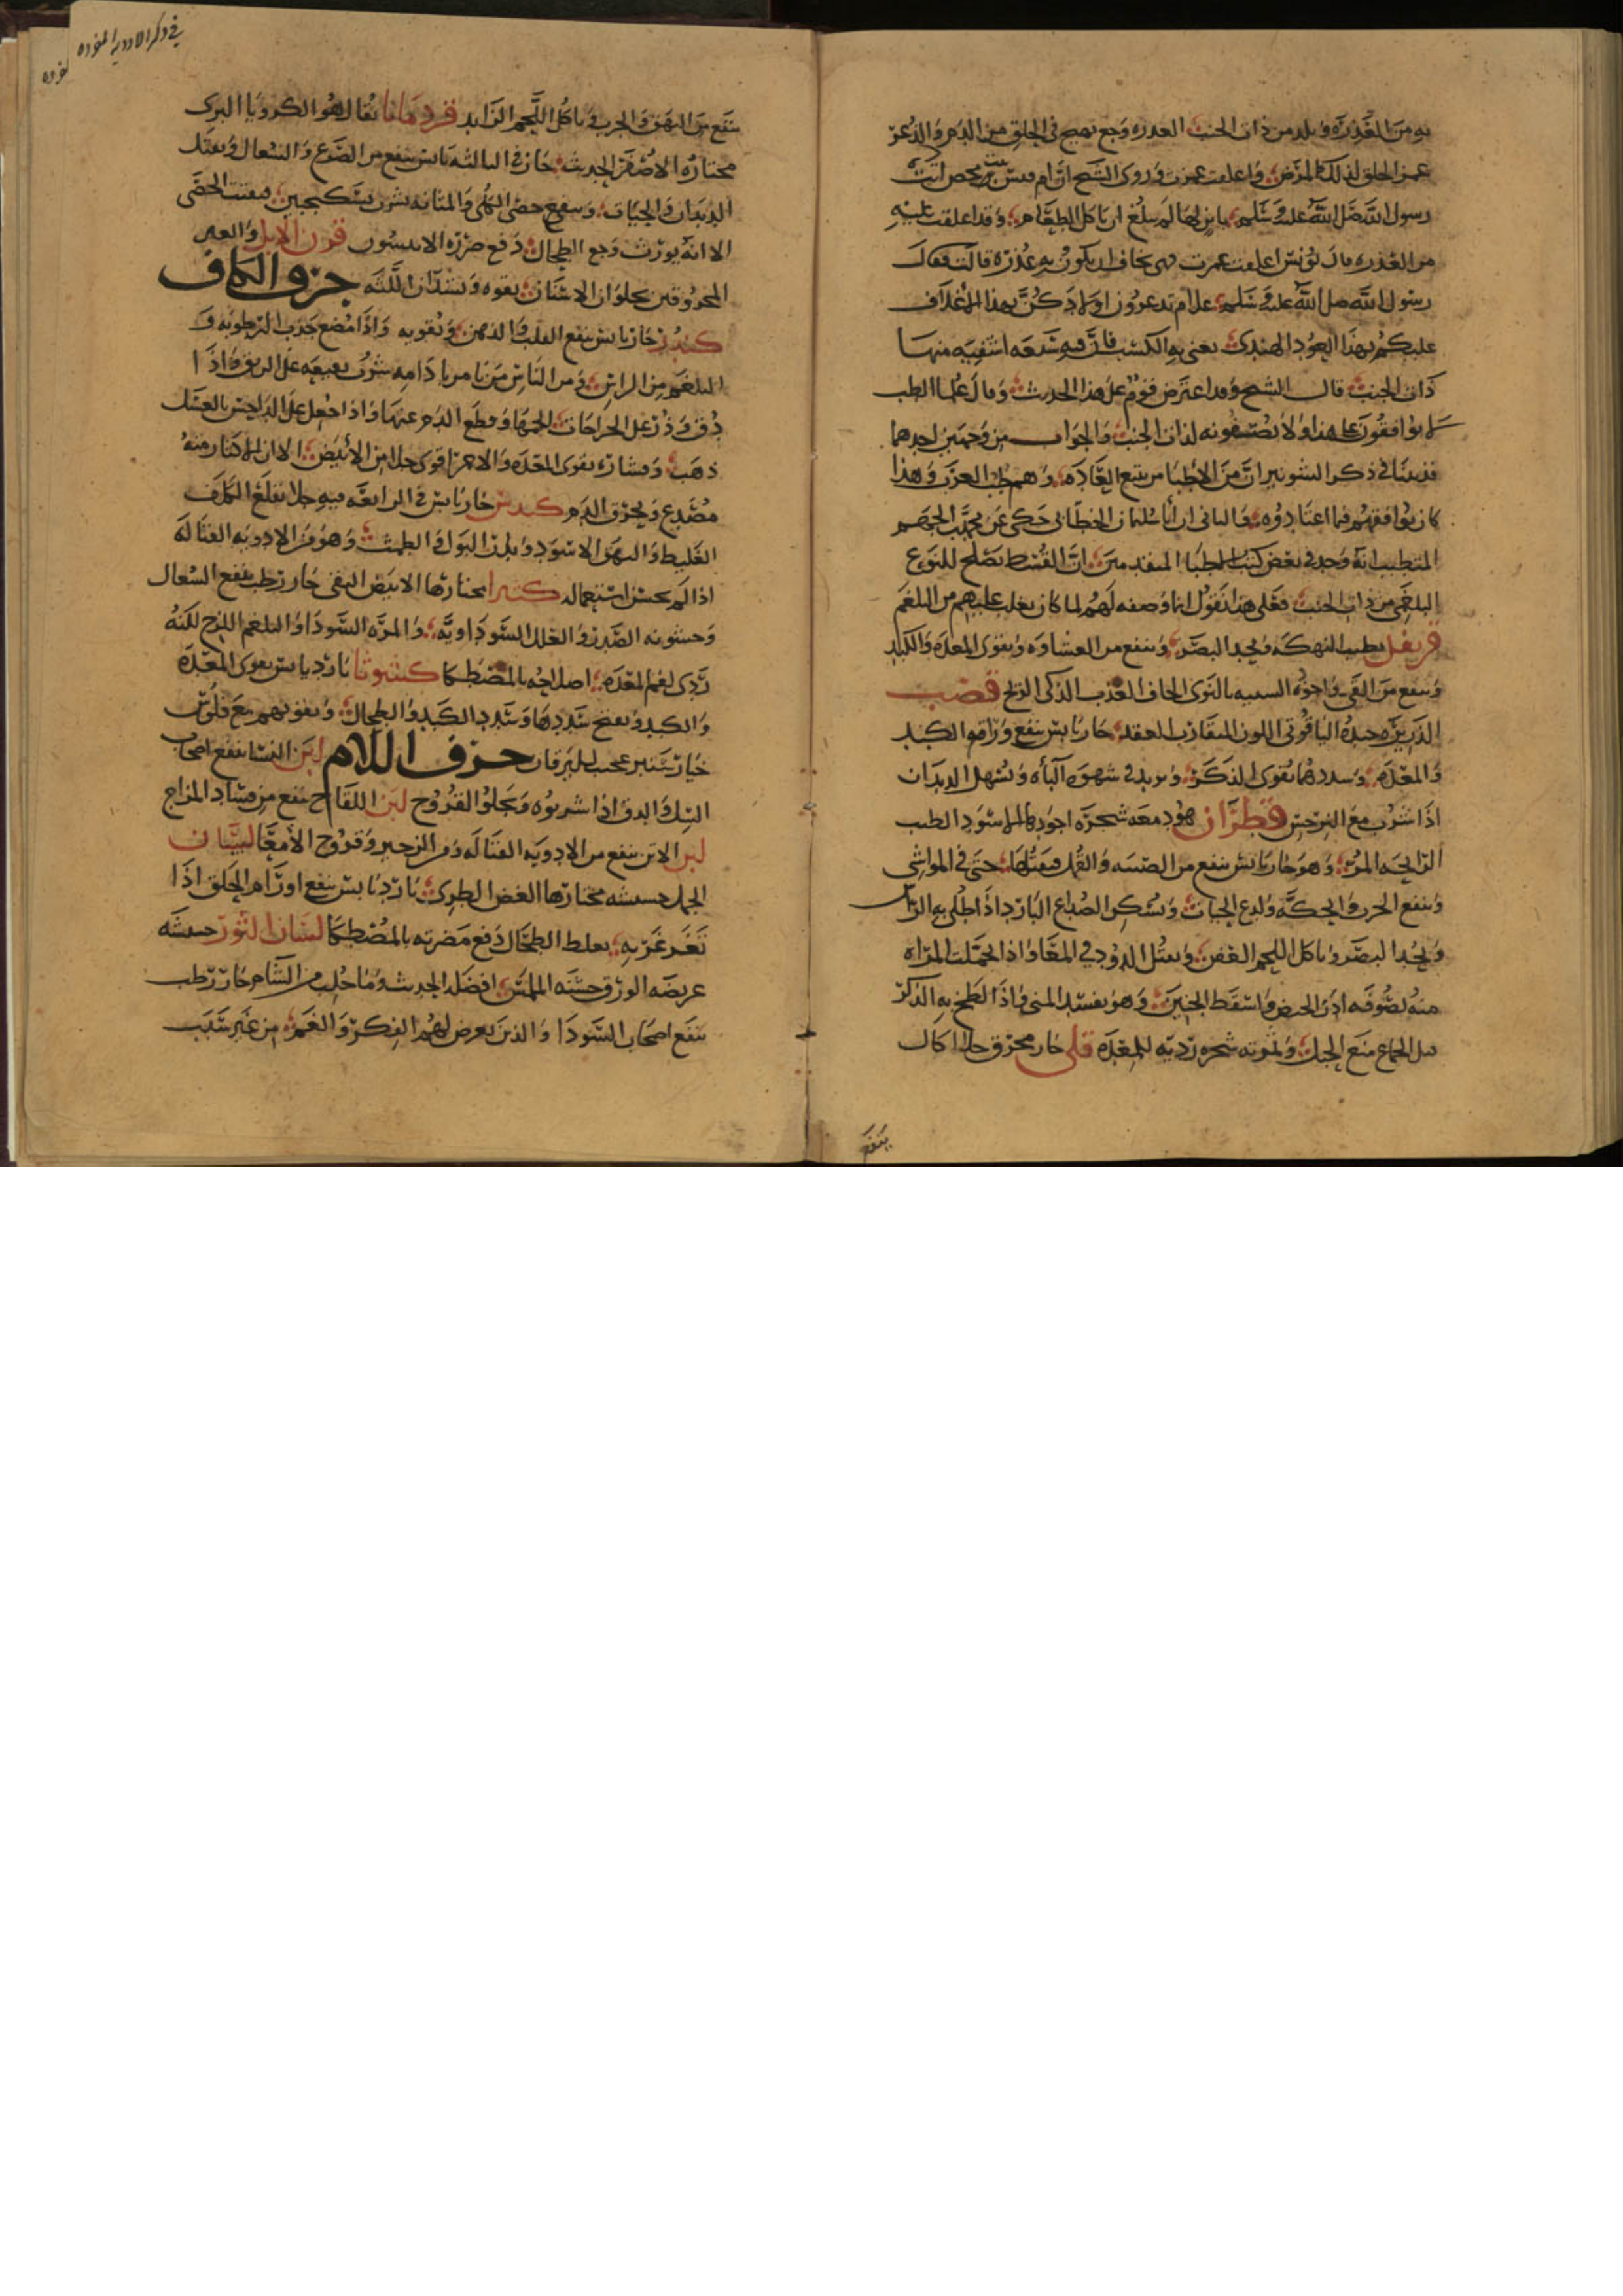 به من العذرة ويلد من ذات الجنب العذرة وجع يهيج في الحلق من الدم والدغر
غمز الحلق لذلك المرض واعلقت غمزت وروى الشيخ ان ام قيس بنت محصن اتت
رسول الله صلى الله عليه وسلم بابن لها لم يبلغ ان ياكل الطعام وقد اعلقت عليه
من العذرة قال يونس اعلقت غمزت فهي تخاف ان يكون به عذرة قالت فقال
رسول الله صلى الله عليه وسلم علام تدغرون اولادكن بهذا الاغلاق
عليكم بهذا العود الهندي يعني به الكست فان فيه سبعة اشفية منها
ذات الجنب قال الشيخ وقد اعترض قوم على هذا الحديث وقال علما الطب
لا يوافقون على هذا ولا يصفونه لذات الجنب والجواب من وجهين احدهما
قد بينا في ذكر الشونيز ان من الاطبا من يتبع العادة وهم طب العرب وهذا
كان يوافقهم فيما اعتادوه والثاني ان ابا سليمان الخطابي حكى عن محمد الجهم
المتطبب انه وجد في بعض كتب الاطبا المتقدمين ان القسط يصلح للنوع
البلغمي من ذات الجنب فعلى هذا نقول انما وصفه لهم لما كان يغلب عليهم من البلغم
قرنفل يطيب النهكة ويحد البصر وينفع من الغشاوة ويقوي المعدة والكبد
وينفع من القي واجوده الشبيه بالنوى الجاف العذب الذكي الريح قصب
الذريرة جيده الياقوتي اللون المتقارب العقد حار يابس ينفع وراقوا الكبد
والمعدة وسددهما يقوي الذكر ويزيد في شهوة الباه ويسهل الديدان
اذا شرب مع النرجس قطران هو دمعة شجرة اجوده الاسود الطيب
الرايحة المر وهو حار يابس ينفع من الصيبه والقمل فيقتلها حتى في المواشي
وينفع الجرب والحكة ولدغ الحيات ويسكن الصداع البارد اذا طلي به الراس
ويحد البصر وياكل اللحم العفن ويقتل الدود في المعا واذا احتملت المراة
منه بصوفة ادر الحيض واسقط الجنين وهو يفسد المني واذا لطخ به الذكر
قبل الجماع منع الحبل وثمرته شجره ردية للمعدة قلى حار محرق جلا اكال
ينفع
في ذكر الادوية المفردة
ينفع من البهق والجرب وياكل اللحم الزايد قردمانا يقال هو الكرويا البري
مختاره الاصفر الحديث حار في الثالثة يابس ينفع من الصرع والسعال ويقتل
الديدان والحيات وينفع حصى الكلى والمثانة يشرب بسكنجبين فيفتت الحصى
الا انه يورث وجع الطحال دفع ضرره الانيسون قرن الايل والعنز
المحروقين يجلوان الاسنان بقوه ويشدان اللثه حرف الكاف
كندر حار يابس ينفع القلب والذهن ويقويه واذا مضغ جذب الرطوبه و
البلغم من الراس ومن الناس من يامر بادامه شرب نقيعه على الريق واذا
دق وذر على الجراحات الحمها وقطع الدم عنها واذا جعل على الداحس بالعسل
ذهب وقشاره يقوي المعده والاحمر اقوى جلا من الابيض الا ان الاكثار منه
مصدع ويحرق الدم كندس حار يابس في الرابعة فيه جلا يقلع الكلف
الغليظ والبهق الاسود ويدر البول والطمث وهو من الادوية القتالة
اذا لم يحسن استعماله كثيرا مختارها الابيض النقي حار رطب ينفع السعال
وخشونة الصدر والعلل السوداوية والمرة السودا والبلغم اللزج لكنه
ردي لفم المعده اصلاحه بالمصطكا كشوثا بارد يابس يقوي المعدة
والكبد ويفتح سددها وسدد الكبد والطحال ويقويهم مع فلوس
خيار شنبر عجيب لليرقان حرف اللام لبن النسا ينفع اصحاب
السل والدق اذا شربوه ويجلو القروح لبن اللقاح ينفع من فساد المزاج
لبن الاتن ينفع من الادوية القتاله ومن الزحير وقروح الامعا لسان
الحمل حشيشه مختارها الغض الطري بارد يابس ينفع اورام الحلق اذا
تغرغر به يغلظ الطحال دفع مضرته بالمصطكا لسان الثور حشيشه
عريضه الورق خشنه الملمس افضله الحديث وما جلب من الشام حار رطب
ينفع اصحاب السودا والذين يعرض لهم الفكر والغم من غير سبب